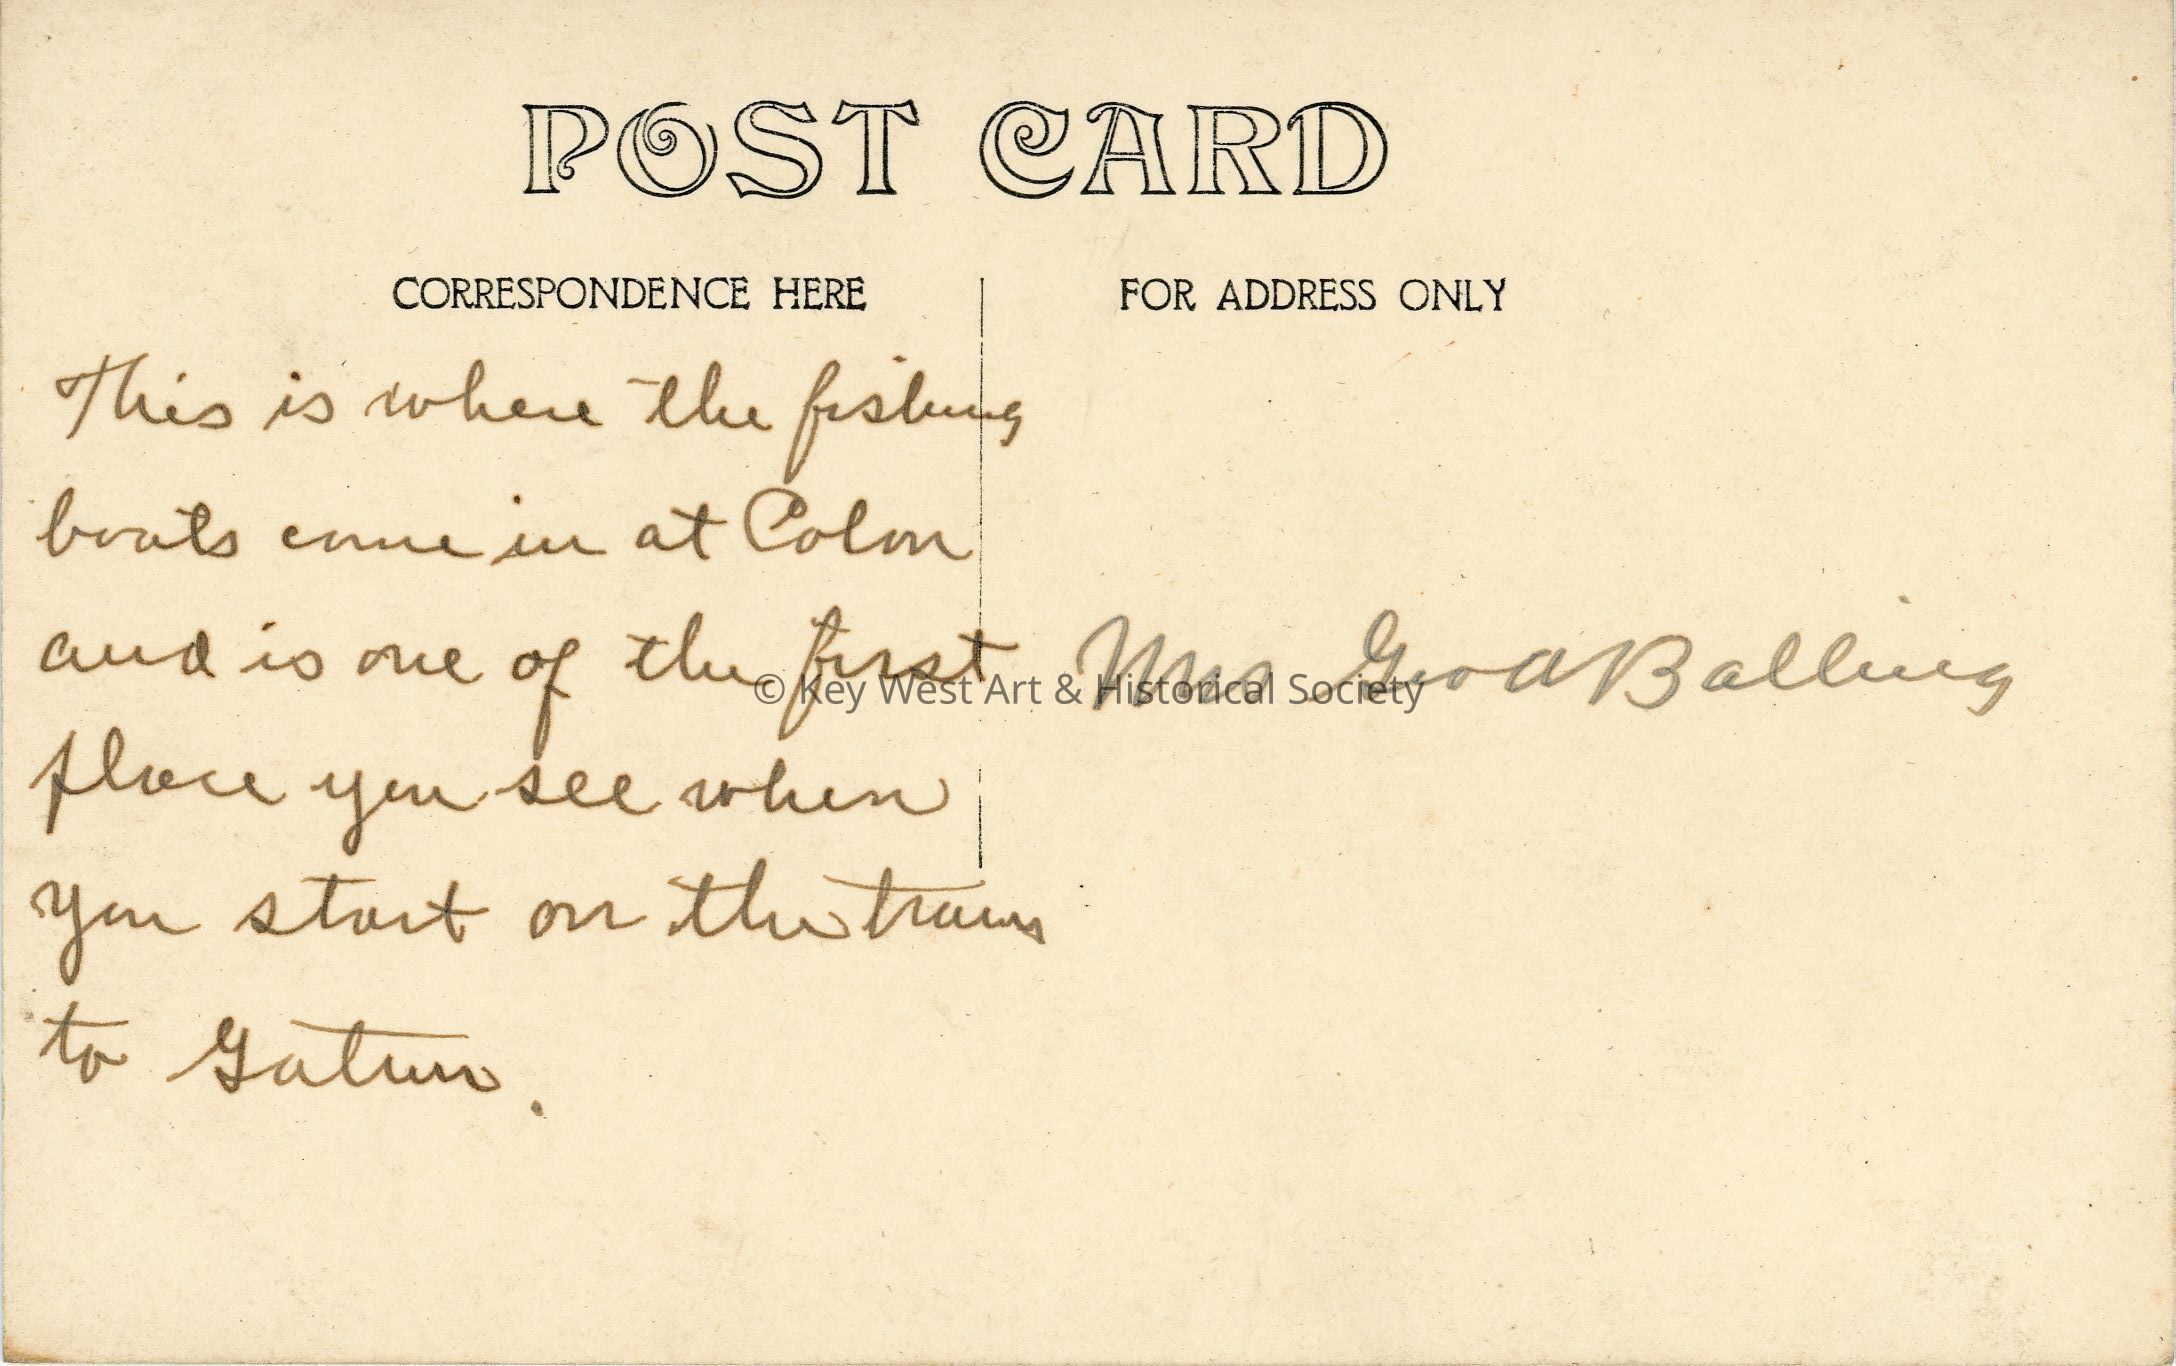 POST CARD
CORRESPONDENCE HERE
FOR ADDRESS ONLY
This is where the fishing
boats come in at Colon
and is one of the first
place you see when
you start on the train
to Gatun.
Mrs Geo A Balling
© Key West Art & Historical Society